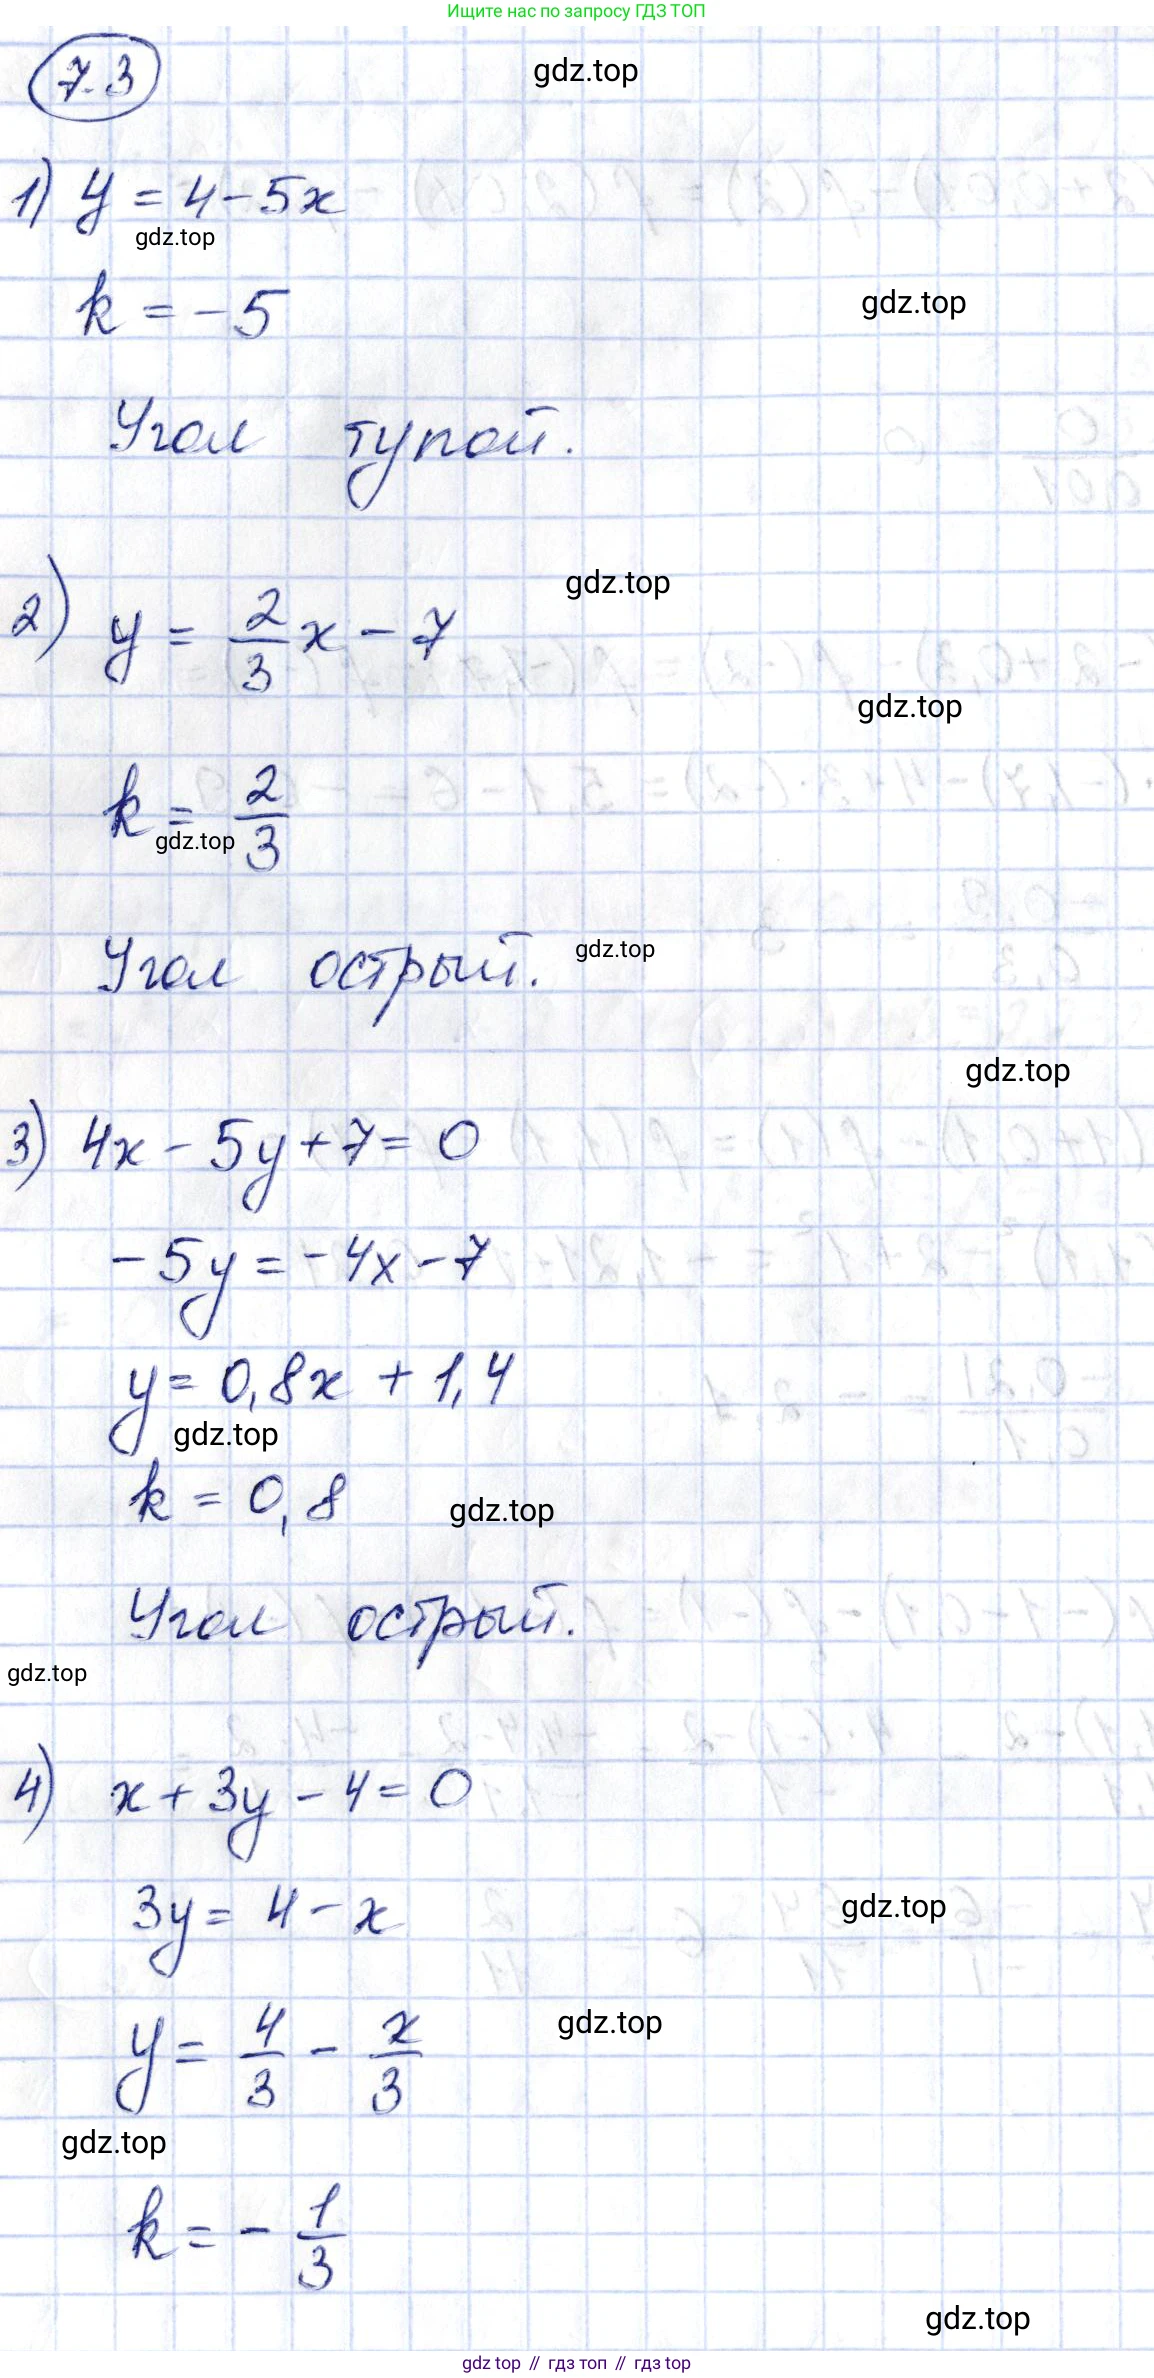 Ищите нас по запросу ГДЗ ТОП
7.3
gdz.top
1) y = 4 - 5x
gdz.top
k = -5
gdz.top
Угол тупой.
gdz.top
2) y = 2/3 x - 7
gdz.top
k = 2/3
gdz.top
Угол острый.
gdz.top
gdz.top
3) 4x - 5y + 7 = 0
-5y = -4x - 7
y = 0,8x + 1,4
gdz.top
k = 0,8
gdz.top
Угол острый.
gdz.top
4) x + 3y - 4 = 0
3y = 4 - x
gdz.top
y = 4/3 - x/3
gdz.top
gdz.top
k = - 1/3
gdz.top
gdz top // гдз топ // гдз top